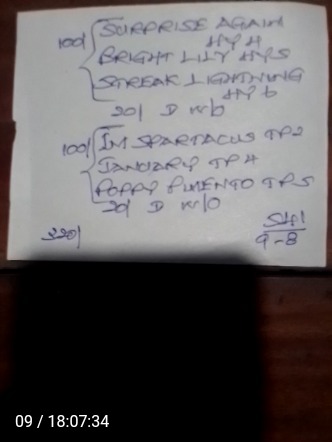 100/ SURPRISE AGAIN
HY 4
BRIGHT LILY HY5
STREAK LIGHTNING
HY 6
20/ D W/O
100/ IM SPARTACUS TP2
JANUARY TP 4
POPPY PIMENTO TP5
20/ D W/O
220/
9-8
09 / 18:07:34